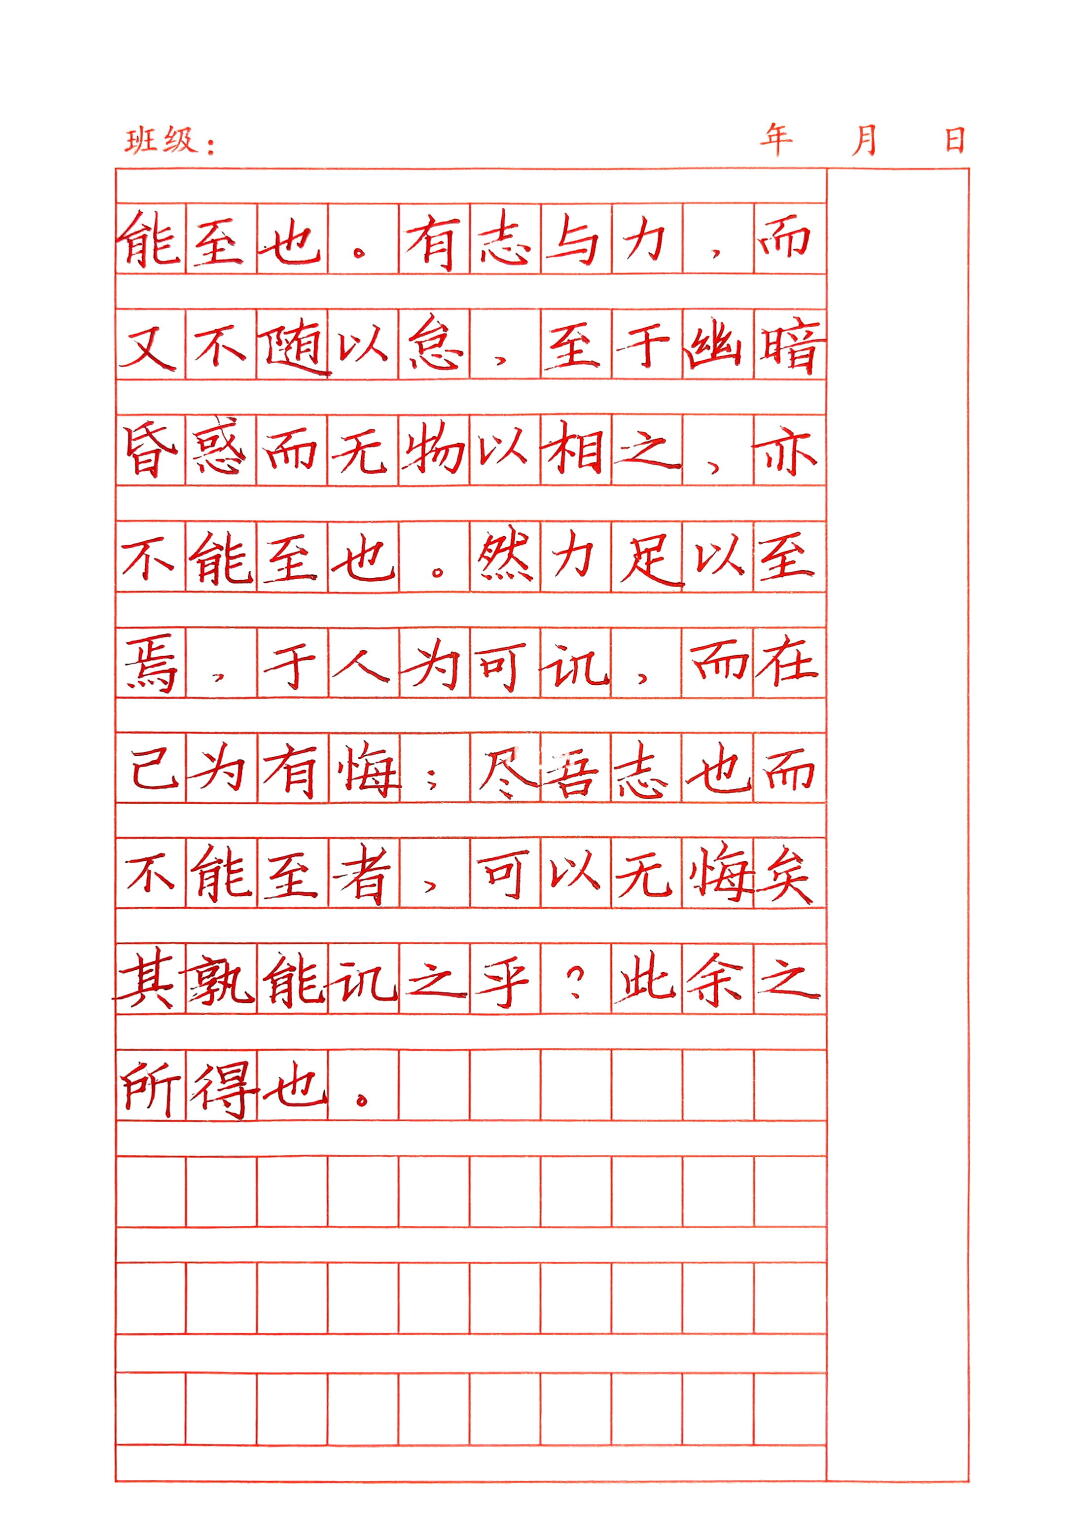 班级： 年 月 日
能至也。有志与力，而
又不随以怠，至于幽暗
昏惑而无物以相之，亦
不能至也。然力足以至
焉，于人为可讥，而在
己为有悔；尽吾志也而
不能至者，可以无悔矣
其孰能讥之乎？此余之
所得也。